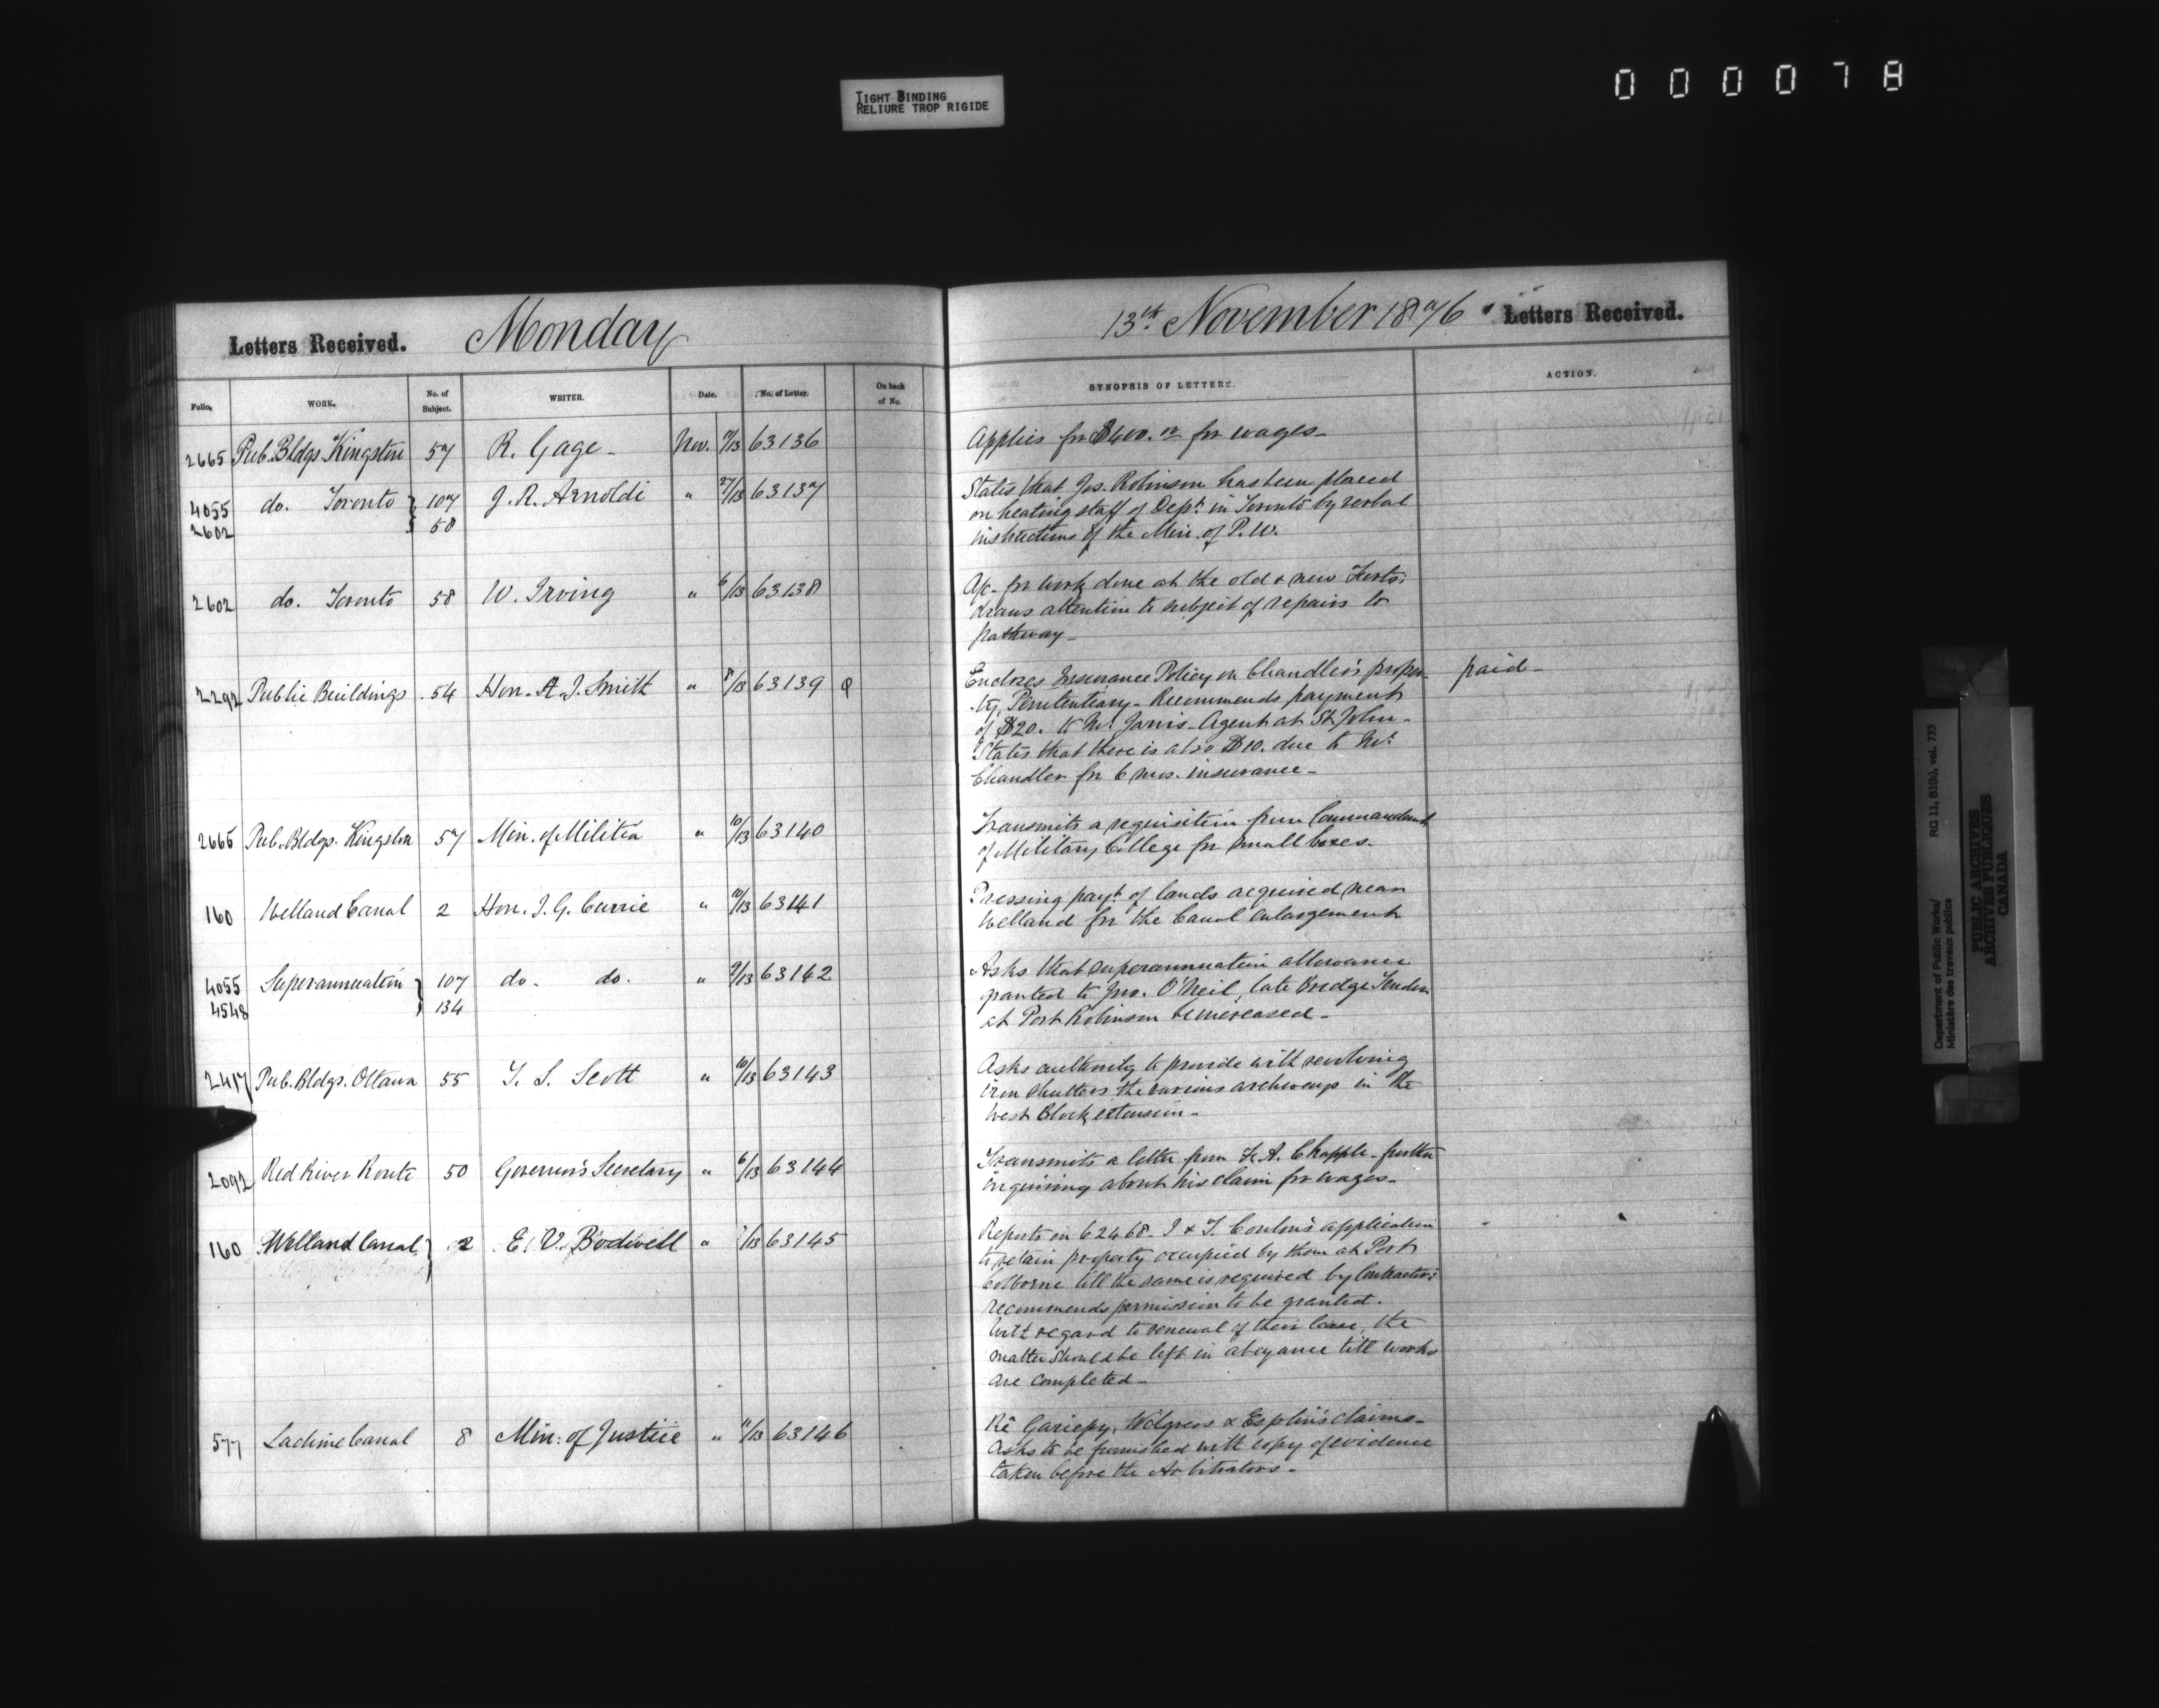 TIGHT BINDING
RELIURE TROP RIGIDE
000078
Letters Received. Monday
13th November 1876 Letters Received.
Folio. WORK. No. of Subject. WRITER. Date. No. of Letter. On back of No. SYNOPSIS OF LETTERS. ACTION.
2665 Pub. Bldgs. Kingston 57 R. Gage - Nov. 63136
Applies for $400.00 for wages -
4055 do. Toronto } 107 J. R. Arnoldi " 27/13 63137
2602 58
States that Jos. Robinson has been placed
on heating staff of Dept. in Toronto by verbal
instructions of the Min. of P. W.
2602 do. Toronto 58 W. Irving " 6/13 63138
A/c. for work done at the old & new Forts:
draws attention to subject of repairs to
pathway -
2292 Public Buildings 54 Hon. A. J. Smith " 8/13 63139
Encloses Insurance Policy on Chandler's proper-
ty, Penitentiary - Recommends payment
of $20. to Mr. Jarvis - Agent at St John -
States that there is also $10. due to Mr.
Chandler for 6 mos. insurance -
paid -
2665 Pub. Bldgs. Kingston 57 Min. of Militia " 10/13 63140
Transmits a requisition from Commandant
of Military College for small boxes.
160 Welland Canal 2 Hon. J. G. Currie " 10/13 63141
Pressing payt. of lands acquired near
Welland for the Canal enlargement
4055 Superannuation } 107 do. do. " 9/13 63142
4548 134
Asks that superannuation allowance
granted to Jno. O'Neil, late Bridge Tender
at Port Robinson be increased -
2417 Pub. Bldgs. Ottawa 55 T. S. Scott " 10/13 63143
Asks authority to provide with revolving
iron shutters the various archways in the
West Block extension -
2092 Red River Route 50 Governor's Secretary " 6/13 63144
Transmits a letter from F. A. Chapple - further
inquiring about his claim for wages -
160 Welland Canal } 2 E. V. Bodwell " 63145
Reports on 62468 - J & T. Conlon's application
to retain property occupied by them at Port
Colborne till the same is required by Contractors:
recommends permission to be granted.
With regard to renewal of their lease, the
matter should be left in abeyance till works
are completed -
577 Lachine Canal 8 Min: of Justice " 11/13 63146
Re Gariepy, & Esplin's claims -
Asks to be furnished with copy of evidence
taken before the Arbitrators -
Department of Public Works/
Ministère des travaux publics
RG 11, B1(b), vol. 733
PUBLIC ARCHIVES
ARCHIVES PUBLIQUES
CANADA